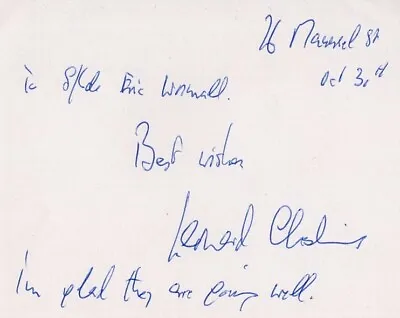 26
Oct 30th
to S/Ldr Eric Wormall.
Best wishes
Leonard Cheshire
I'm glad they are going well.